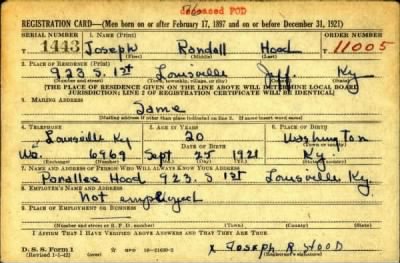 deceased POD
REGISTRATION CARD—(Men born on or after February 17, 1897 and on or before December 31, 1921)
SERIAL NUMBER 1. NAME (Print) ORDER NUMBER
1443 Joseph Randall Hood 11005
(First) (Middle) (Last)
2. PLACE OF RESIDENCE (Print)
923 S. 1st Louisville Jeff. Ky
(Number and street) (Town, township, village, or city) (County) (State)
[THE PLACE OF RESIDENCE GIVEN ON THE LINE ABOVE WILL DETERMINE LOCAL BOARD
JURISDICTION; LINE 2 OF REGISTRATION CERTIFICATE WILL BE IDENTICAL]
3. MAILING ADDRESS
Same
[Mailing address if other than place indicated on line 2. If same insert word same]
4. TELEPHONE 5. AGE IN YEARS 6. PLACE OF BIRTH
Louisville Ky 20 Washington
DATE OF BIRTH (Town or county)
Wa. 6969 Sept 25 1921 Ky
(Exchange) (Number) (Mo.) (Day) (Yr.) (State or country)
7. NAME AND ADDRESS OF PERSON WHO WILL ALWAYS KNOW YOUR ADDRESS
Hood 923 S 1st Louisville Ky.
8. EMPLOYER'S NAME AND ADDRESS
Not employed
9. PLACE OF EMPLOYMENT OR BUSINESS
(Number and street or R. F. D. number) (Town) (County) (State)
I AFFIRM THAT I HAVE VERIFIED ABOVE ANSWERS AND THAT THEY ARE TRUE.
D. S. S. Form 1
(Revised 1-5-42) GPO x Joseph R. Hood